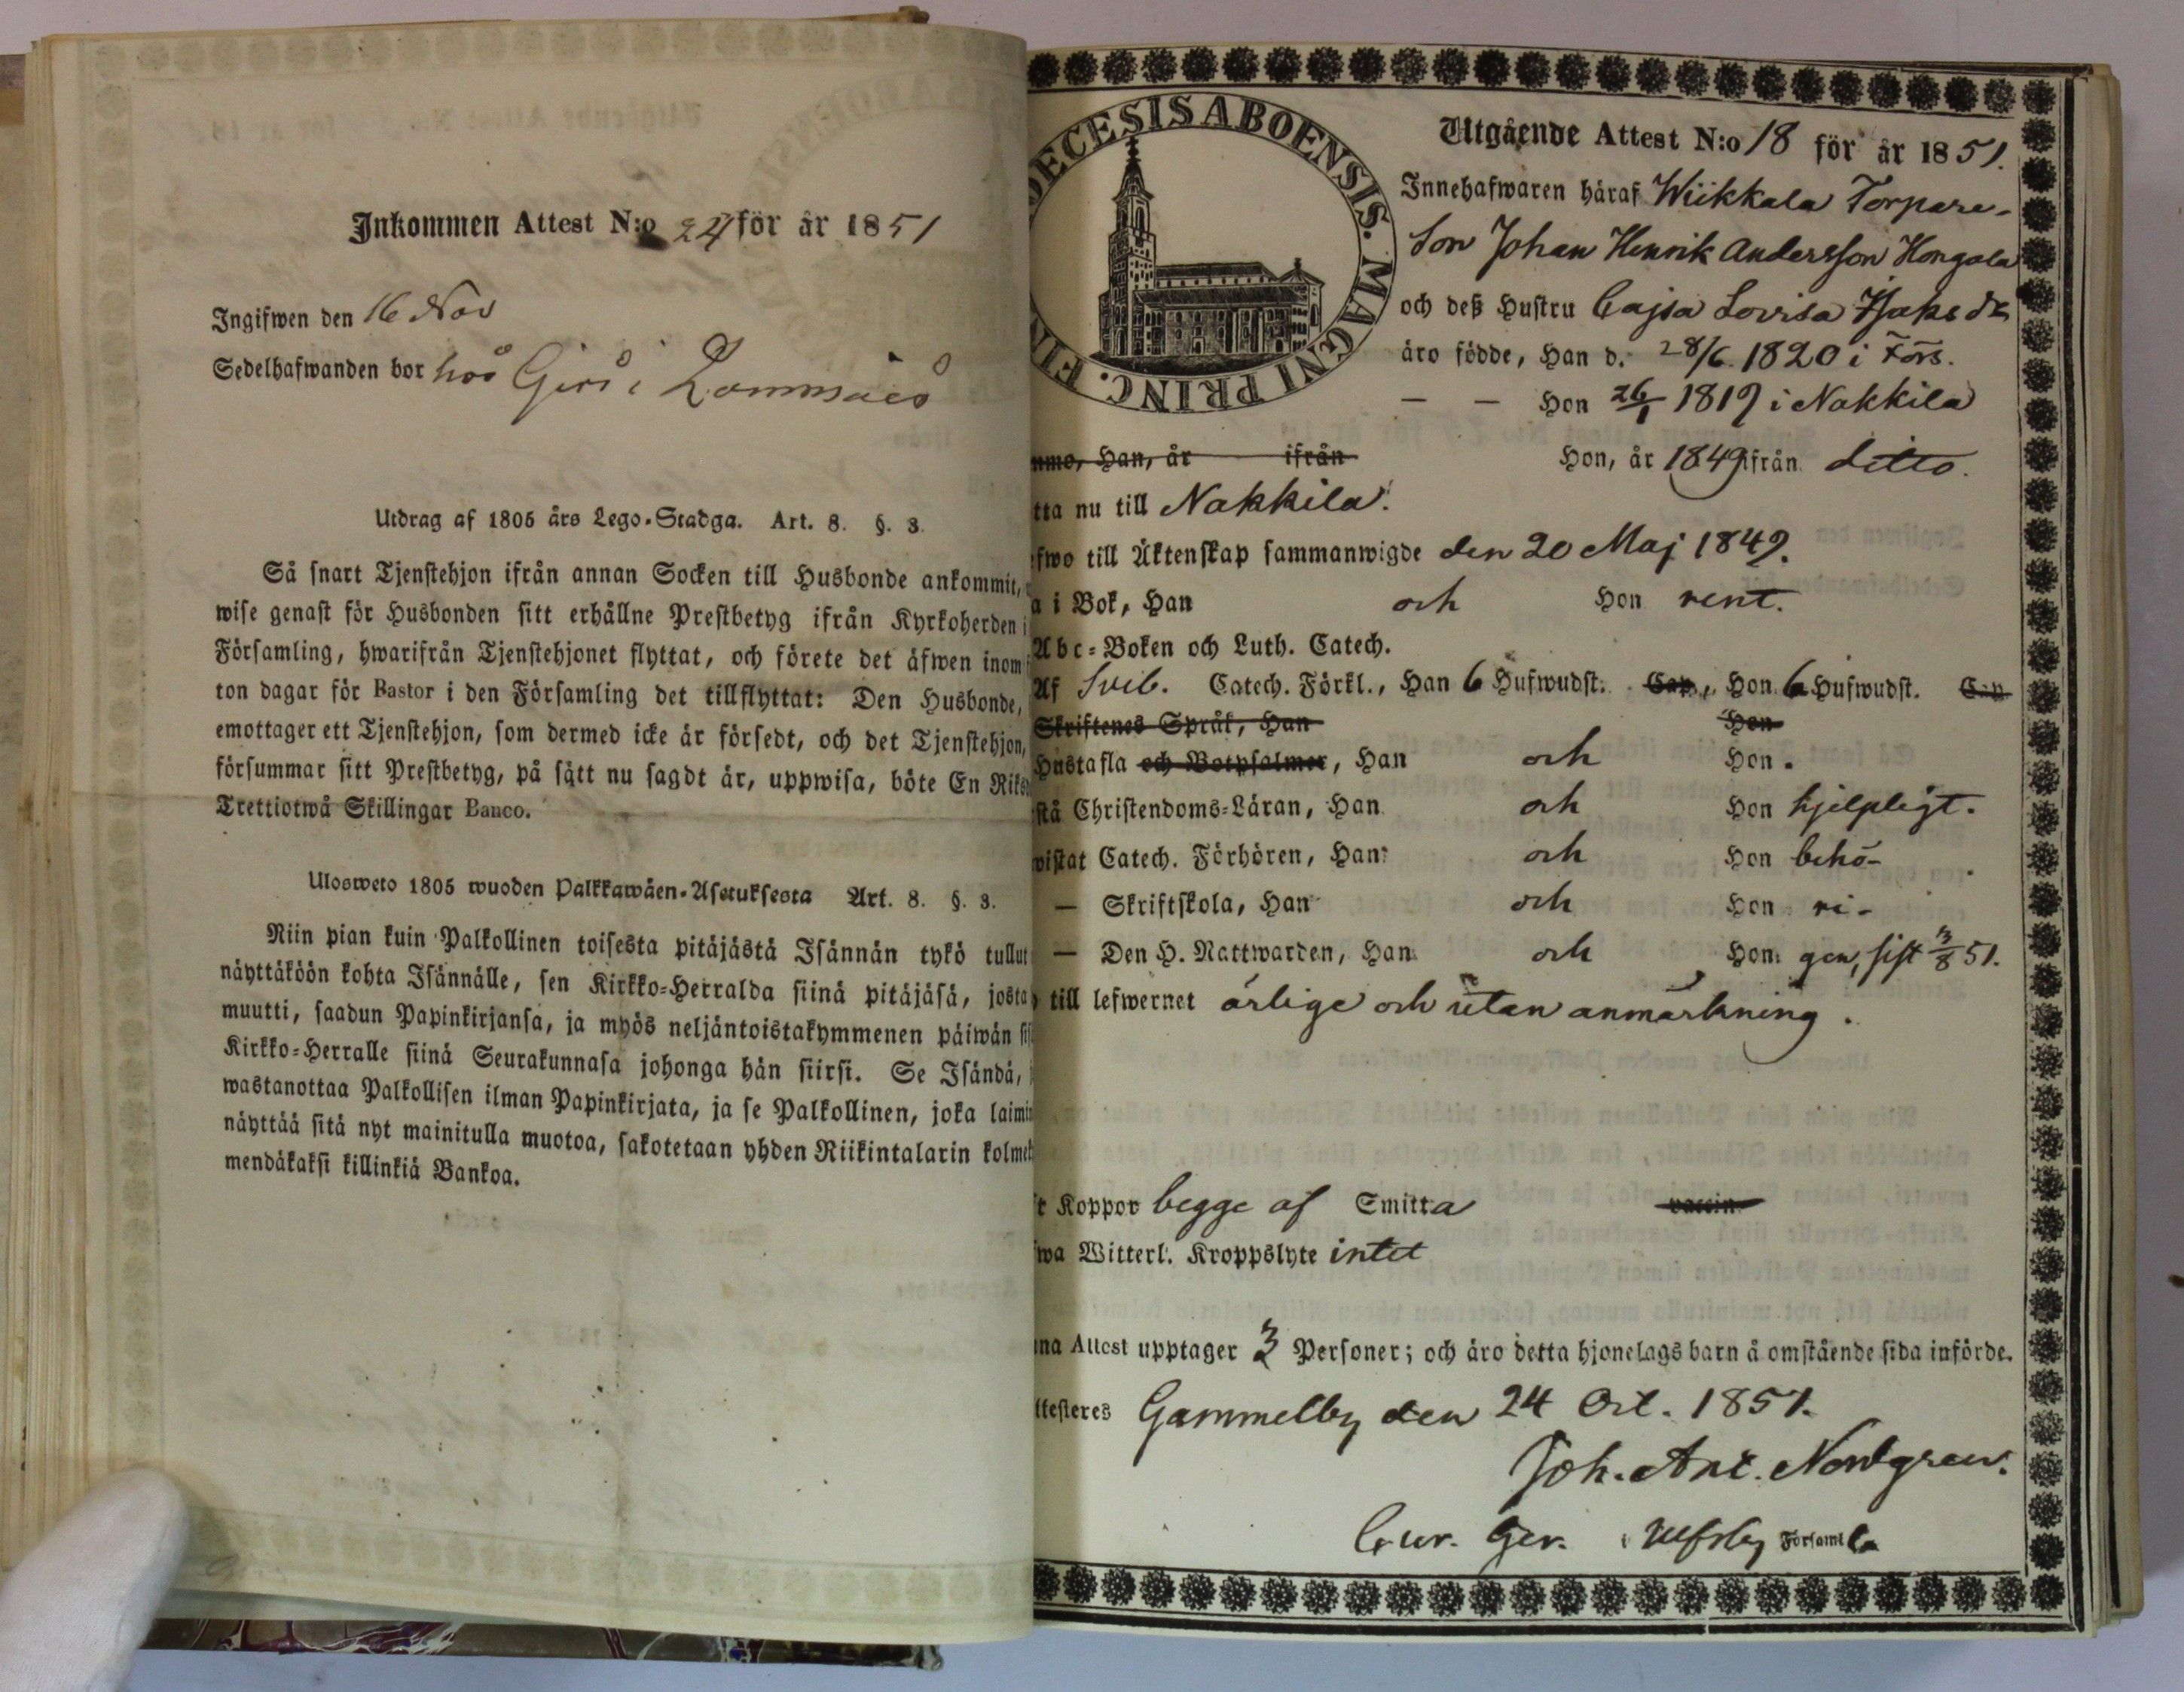 Inkommen Attest N:o 24 för år 1851
Ingifwen den 16 Nov
Sedelhafwanden bor hos Girs i
Utdrag af 1805 års Lego-Stadga. Art. 8. §. 3.
Så snart Tjenstehjon ifrån annan Socken till Husbonde ankommit,
wise genast för Husbonden sitt erhållne Prestbetyg ifrån Kyrkoherden i
Församling, hwarifrån Tjenstehjonet flyttat, och förete det äfwen inom
ton dagar för Pastor i den Församling det tillflyttat: Den Husbonde,
emottager ett Tjenstehjon, som dermed icke är försedt, och det Tjenstehjon,
försummar sitt Prestbetyg, på sätt nu sagdt är, uppwisa, böte En Riks
Trettiotwå Skillingar Banco.
Ulosweto 1805 wuoden Palkkawäen-Asetuksesta Art. 8. §. 3.
Niin pian kuin Palkollinen toisesta pitäjästä Isännän tykö tullut
näyttäköön kohta Isännälle, sen Kirkko-Herralda siinä pitäjäsä, josta
muutti, saadun Papinkirjansa, ja myös neljäntoistakymmenen päiwän sis
Kirkko-Herralle siinä Seurakunnasa johonga hän siirsi. Se Isändä, j
wastanottaa Palkollisen ilman Papinkirjata, ja se Palkollinen, joka laimin
näyttää sitä nyt mainitulla muotoa, sakotetaan yhden Riikintalarin kolmek
mendäkaksi killinkiä Bankoa.
DECESIS ABOENSIS. MAGNI PRINC. FIN
Utgående Attest N:o 18 för år 1851.
Innehafwaren häraf Wiikkala Torpare-
Son Johan Henrik Andersson Hongola
och deß Hustru Cajsa Lovisa Isaksdr
äro födde, Han d. 28/6 1820 i Förs.
— — Hon 26/1 1819 i Nakkila
nmo, Han, år ifrån Hon, år 1849 ifrån ditto.
tta nu till Nakkila.
fwo till Äktenskap sammanwigde den 20 Maj 1849.
a i Bok, Han och Hon rent.
Abc-Boken och Luth. Catech.
Af Sveb. Catech. Förkl., Han 6 Hufwudst. Cap., Hon 6 Hufwudst. Cap
Skriftenes Språk, Han Hon
Hustafla och Botpsalmer, Han och Hon.
stå Christendoms-Läran, Han och Hon hjelpligt.
wistat Catech. Förhören, Han och Hon behö-
— Skriftskola, Han och Hon ri-
— Den H. Nattwarden, Han och Hon gen, sist 3/8 51.
till lefwernet ärlige och utan anmärkning.
t Koppor begge af Smitta vaccin
wa Witterl. Kroppslyte intet
na Attest upptager 3 Personer; och äro detta hjonelags barn å omstående sida införde.
ttesteres Gammelby den 24 Oct. 1851.
Joh. Ant. Nordgren.
Cur. Ger. i Ulfsby Församl